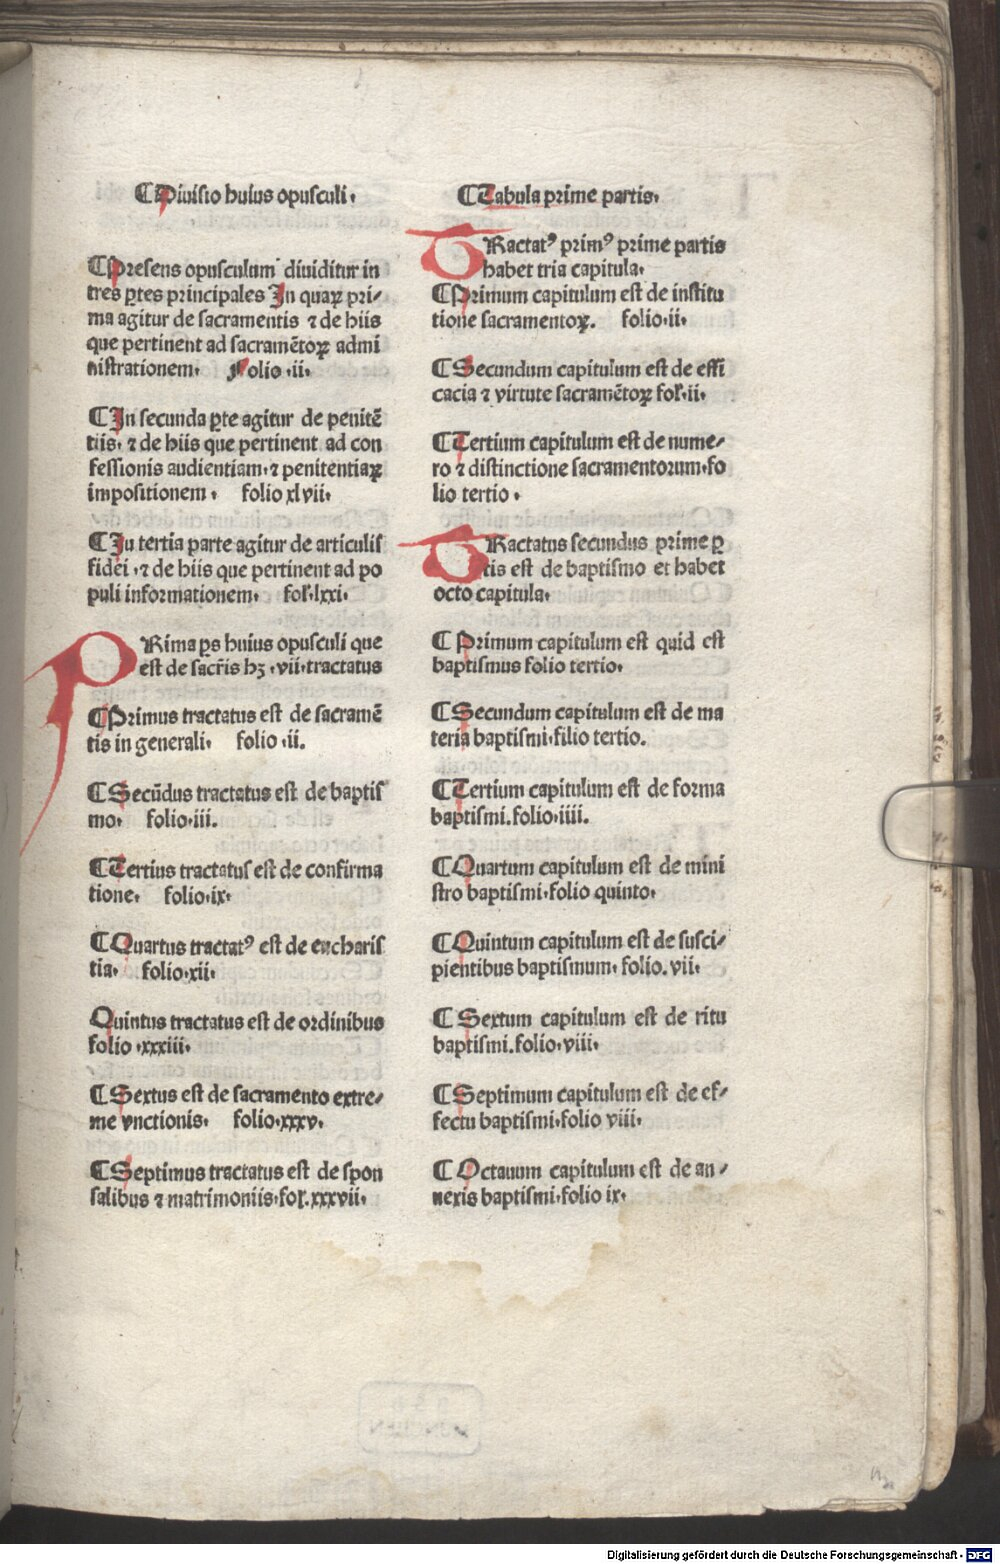 ¶Diuisio huius opusculi.
¶Presens opusculum diuiditur in
tres ꝑtes principales In quaꝝ pri⸗
ma agitur de sacramentis ⁊ de hiis
que pertinent ad sacramētoꝝ admi
nistrationem. Folio .ii.
¶In secunda ꝑte agitur de penitē
tiis. ⁊ de hiis que pertinent ad con
fessionis audientiam.⁊ penitentiaꝝ
impositionem. folio xlvii.
¶In tertia parte agitur de articulis
fidei .⁊ de hiis que pertinent ad po
puli informationem. fol.lxxi.
PRima ꝑs huius opusculi que
est de sacr̄is hꝫ .vii.tractatus
¶Primus tractatus est de sacramē
tis in generali. folio .ii.
¶Secūdus tractatus est de baptis
mo. folio.iii.
¶Tertius tractatus est de confirma
tione. folio.ix.
¶Quartus tractatꝰ est de eucharis
tia. folio.xii.
Quintus tractatus est de ordinibus
folio .xxxiii.
¶Sextus est de sacramento extre⸗
me vnctionis. folio.xxxv.
¶Septimus tractatus est de spon
salibus ⁊ matrimoniis.fol.xxxvii.
¶Tabula prime partis.
TRactatꝰ primꝰ prime partis
habet tria capitula.
¶Primum capitulum est de institu
tione sacramentoꝝ. folio.ii.
¶Secundum capitulum est de effi
cacia ⁊ virtute sacramētoꝝ fol.ii.
¶Tertium capitulum est de nume⸗
ro ⁊ distinctione sacramentorum.fo
lio tertio.
TRactatus secundus prime ꝑ
tis est de baptismo et habet
octo capitula.
¶Primum capitulum est quid est
baptismus folio tertio.
¶Secundum capitulum est de ma
teria baptismi.filio tertio.
¶Tertium capitulum est de forma
baptismi.folio.iiii.
¶Quartum capitulum est de mini
stro baptismi.folio quinto.
¶Quintum capitulum est de susci⸗
pientibus baptismum. folio. vii.
¶Sextum capitulum est de ritu
baptismi.folio.viii.
¶Septimum capitulum est de ef⸗
fectu baptismi.folio viii.
¶Octauum capitulum est de an⸗
nexis baptismi.folio ix.
Digitalisierung gefördert durch die Deutsche Forschungsgemeinschaft - DFG